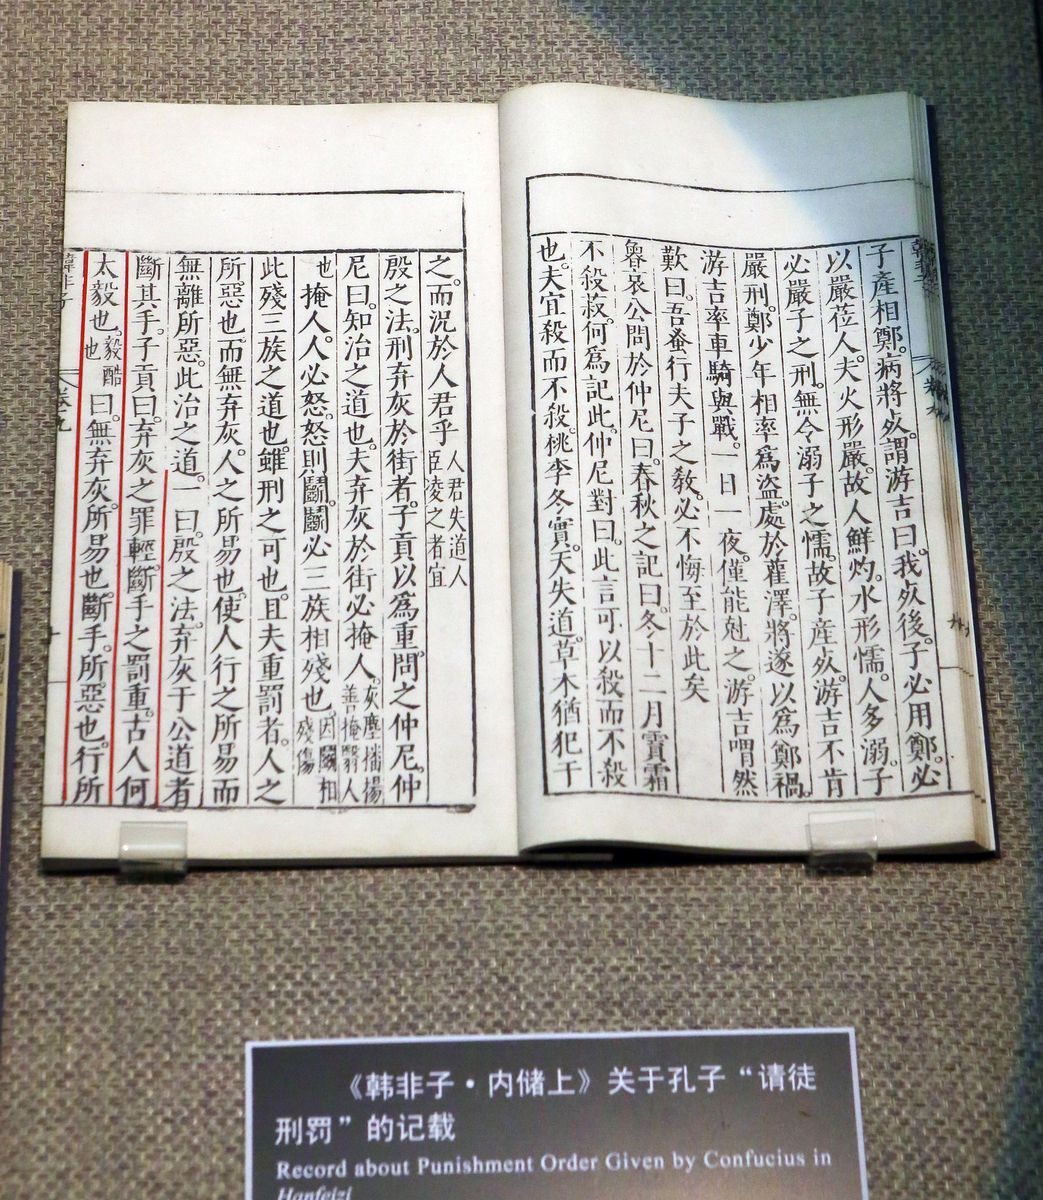 子產相鄭。病將死。謂游吉曰。我死後。子必用鄭。必
以嚴莅人。夫火形嚴。故人鮮灼。水形懦。人多溺。子
必嚴子之刑。無令溺子之懦。故子產死。游吉不肯
嚴刑。鄭少年相率爲盜。處於雚澤。將遂以爲鄭禍。
游吉率車騎與戰。一日一夜。僅能尅之。游吉喟然
歎曰。吾蚤行夫子之敎。必不悔至於此矣
魯哀公問於仲尼曰。春秋之記曰。冬十二月霣霜
不殺菽。何爲記此。仲尼對曰。此言可以殺而不殺
也。夫宜殺而不殺。桃李冬實。天失道。草木猶犯干
之。而況於人君乎 人君失道人臣凌之者宜
殷之法。刑弃灰於街者。子貢以爲重。問之仲尼。仲
尼曰。知治之道也。夫弃灰於街必掩人。灰塵播揚善掩翳人
也 掩人。人必怒。怒則鬭。鬭必三族相殘也。因鬭相殘傷
此殘三族之道也。雖刑之可也。且夫重罰者。人之
所惡也。而無弃灰。人之所易也。使人行之所易而
無離所惡。此治之道。一曰。殷之法。弃灰于公道者
斷其手。子貢曰。弃灰之罪輕。斷手之罰重。古人何
太毅也。毅酷也 曰。無弃灰。所易也。斷手。所惡也。行所
韓非子 卷九
《韩非子·内储上》关于孔子“请徒
刑罚”的记载
Record about Punishment Order Given by Confucius in
Hanfeizi